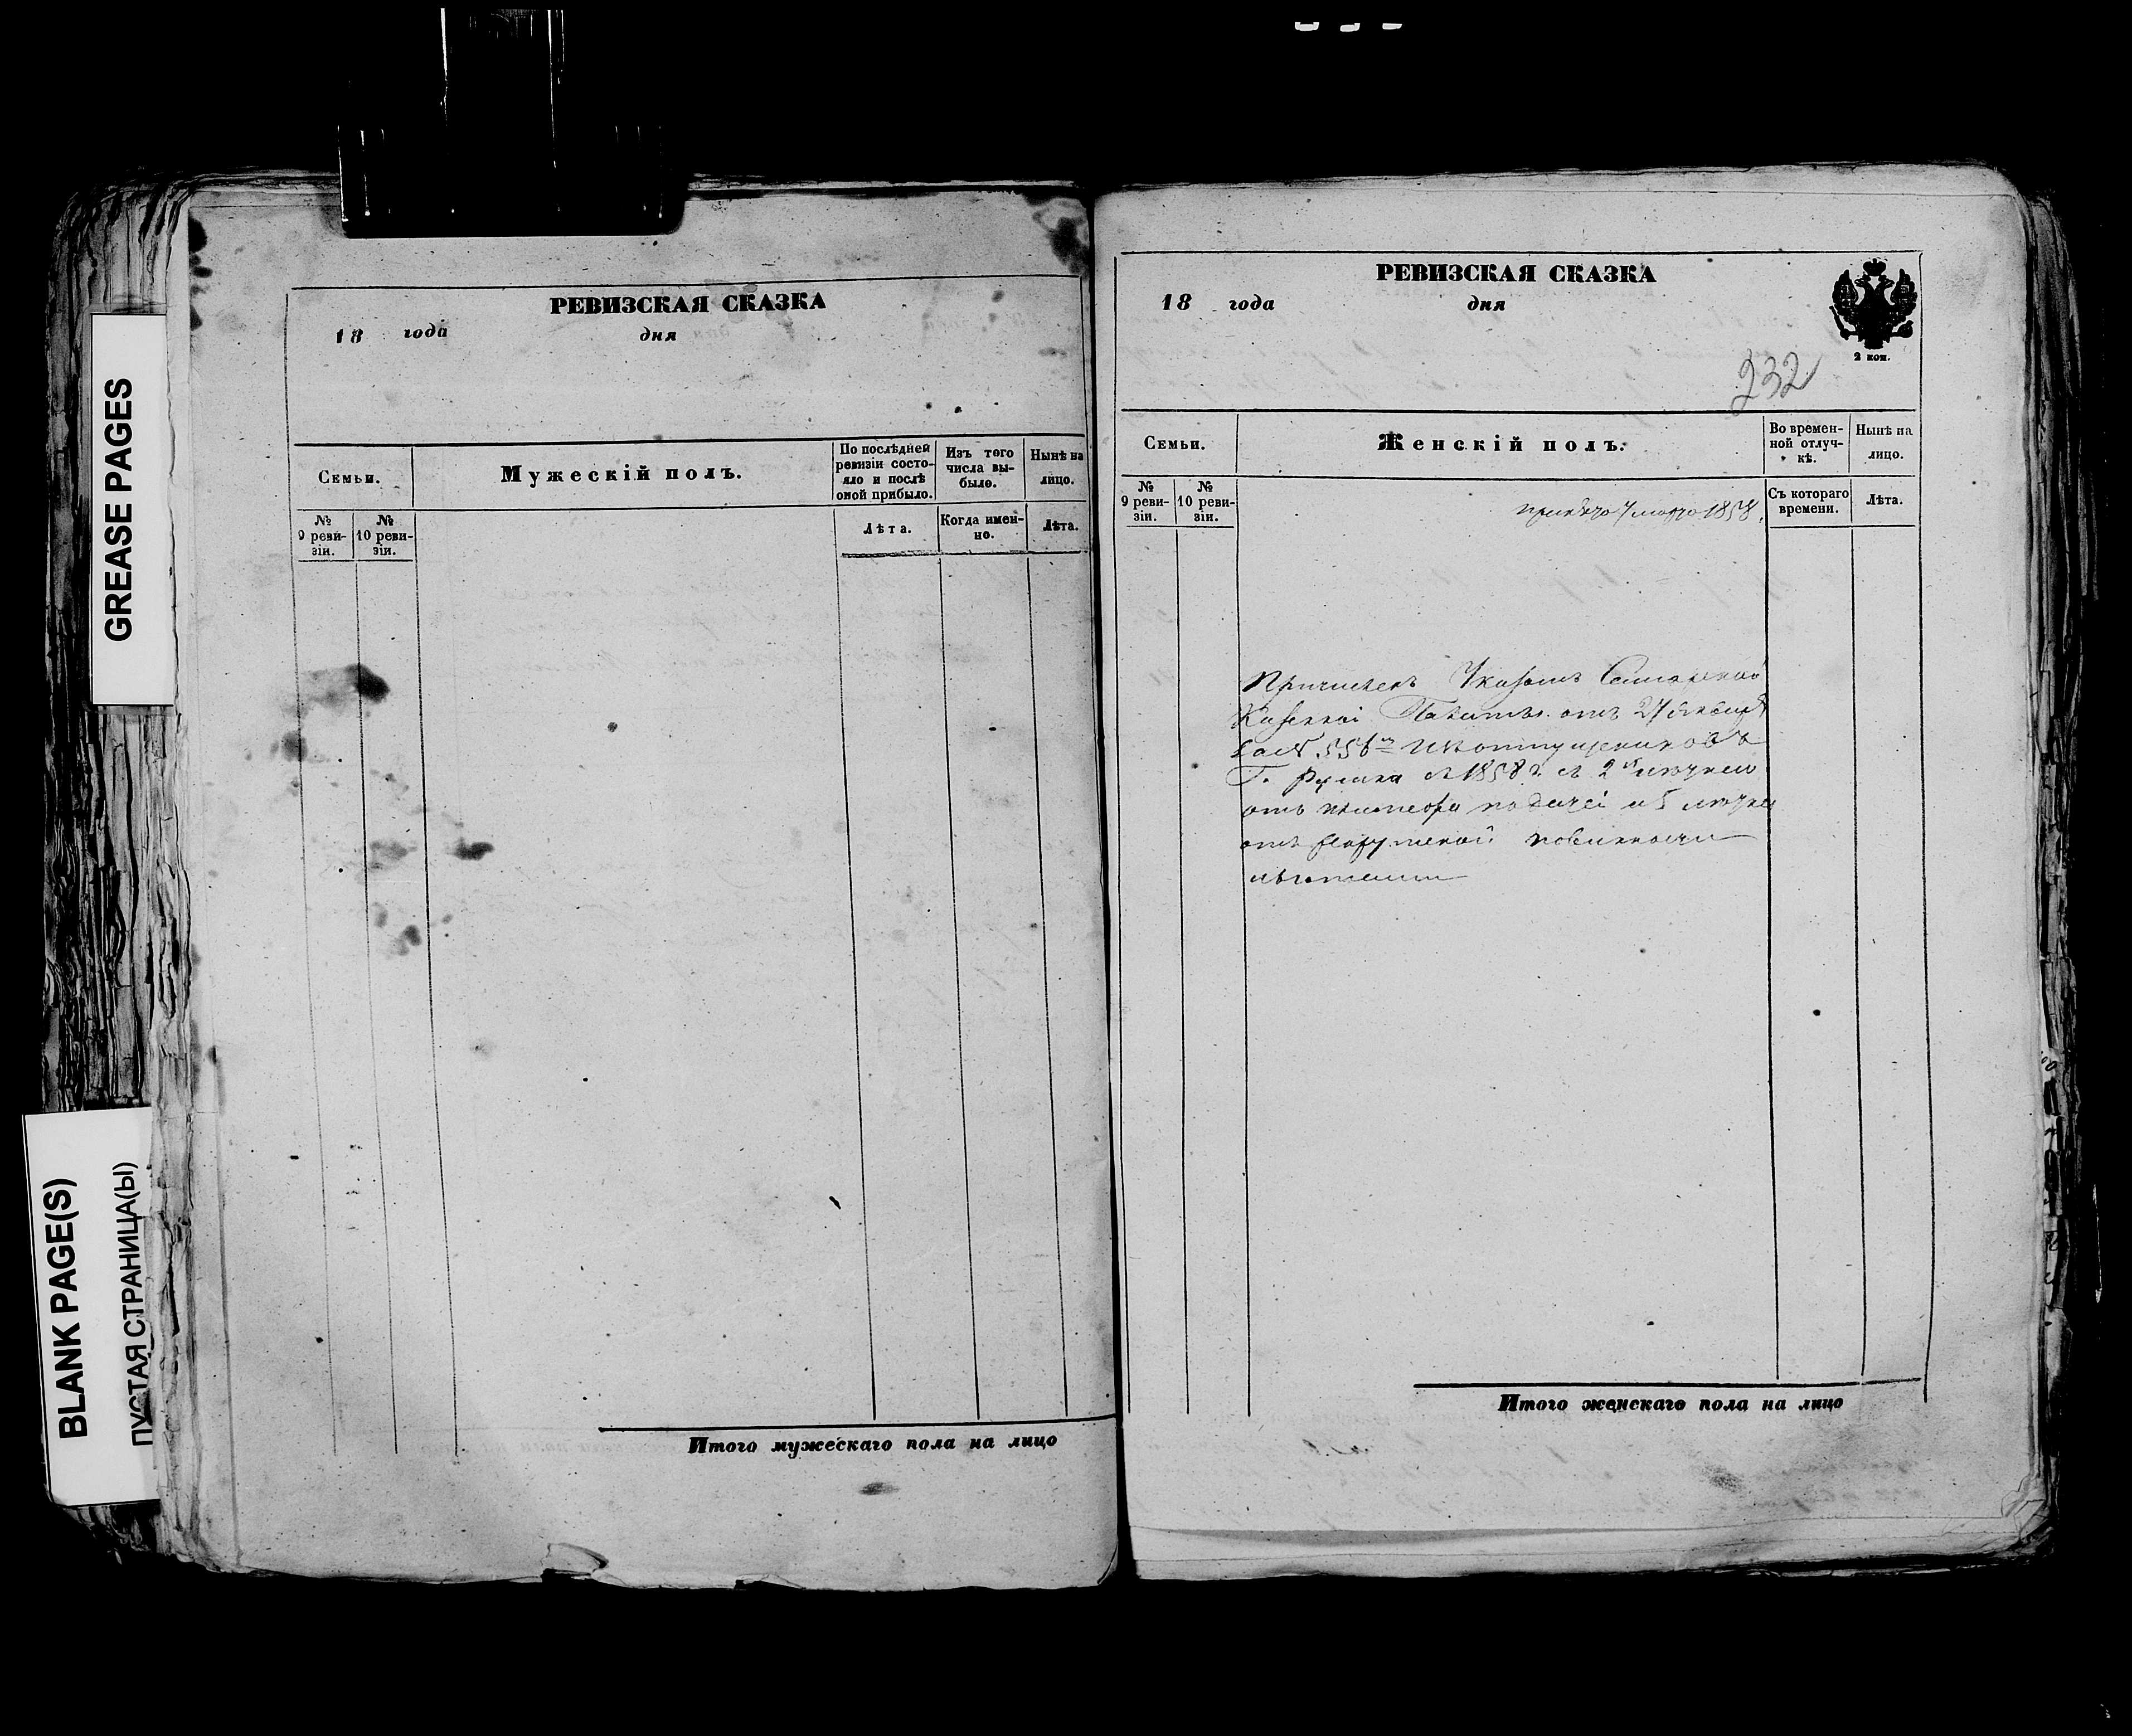 GREASE PAGES
BLANK PAGE(S)
ПУСТАЯ СТРАНИЦА(Ы)
РЕВИЗСКАЯ СКАЗКА
18 года дня
Семьи.
Мужескій полъ.
По послѣдней ревизіи состояло и послѣ оной прибыло.
Изъ того числа выбыло.
Нынѣ на лицо.
№ 9 реви-зіи.
№ 10 реви-зіи.
Лѣта.
Когда имен-но.
Лѣта.
Итого мужескаго пола на лицо
РЕВИЗСКАЯ СКАЗКА
18 года дня
2 коп.
232
Семьи.
Женскій полъ.
Во времен-ной отлуч-кѣ.
Нынѣ на лицо.
№ 9 реви-зіи.
№ 10 реви-зіи.
Съ котораго времени.
Лѣта.
марта 1858
Причисленъ Указомъ Самарской
Казенной Палаты отъ 27 Января
за №
съ 1858 г. съ
отъ податей и
отъ рекрутской повинности
Итого женскаго пола на лицо